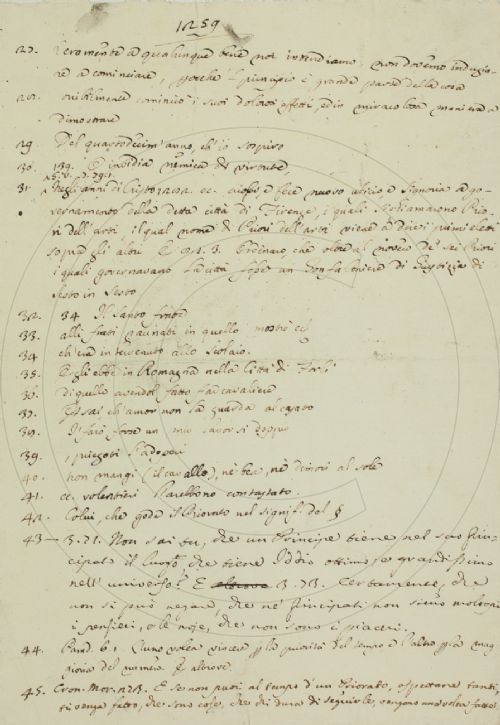 1259
27. Veramente a qualunque bene noi intendiamo, non dovemo indugia-
re a cominciare, perché 'l principio è grande parte della cosa
28. orribilmente cominciò i suoi dolorosi effetti, ed in miracolosa maniera a
dimostrare
29. Del quartodecim' anno, ch' io sospiro
30. 139. O invidia nimica di virtute,
31. Negli anni di Cristo ec. e fece nuovo uficio e Signoria a go-
vernamento della detta città di Firenze, i quali si chiamarono Prio-
ri dell' arti, il qual nome di Priori dell' arti viene a dire i primi eletti
sopra gli altri. E 9. 1. 3. Ordinaro che oltre al novero de' sei Priori
i quali governavano la città fosse un Gonfaloniere di Giustizia di
Sesto in Sesto
32. 34 Il santo frate
33. alli frati raunati in quello mostrò
34 ch' era intervenuto allo scolaio.
35. Egli ebbe in Romagna nella Città di Forlì
36. di quello avendol fatto far cavaliere
37. Tu sai ch' amor non la guarda al casato
38. Ti farò forse un mio lavorsi doppio
39. , priegoti
40. non mangi (il cavallo), né bea, né dimori al sole
41. ec. volentieri l'arebbono contastato.
42. Colui, che gode il Priorato nel signif. del §
43 — 3. 71. Non sai tu, che un Principe tiene nel suo Prin-
cipato il luogo, che tiene Iddio ottimo, e grandissimo
nell' universo? E 3. 73. Certamente, che
non si può negare, che ne' Principati non sieno molti
i pensieri, e le noje, che non sono i piaceri.
44. Pand. 61. L'uno volea vincer p la priorità del tempo e l'altro p la mag
gioria del numero. E altrove
45. Cron. Mor. 273. E se non puoi al tempo d' un Priorato, aspettane tanti,
ti venga fatto, che sono cose, che chi dura di seguirle, vengono una volta fatte